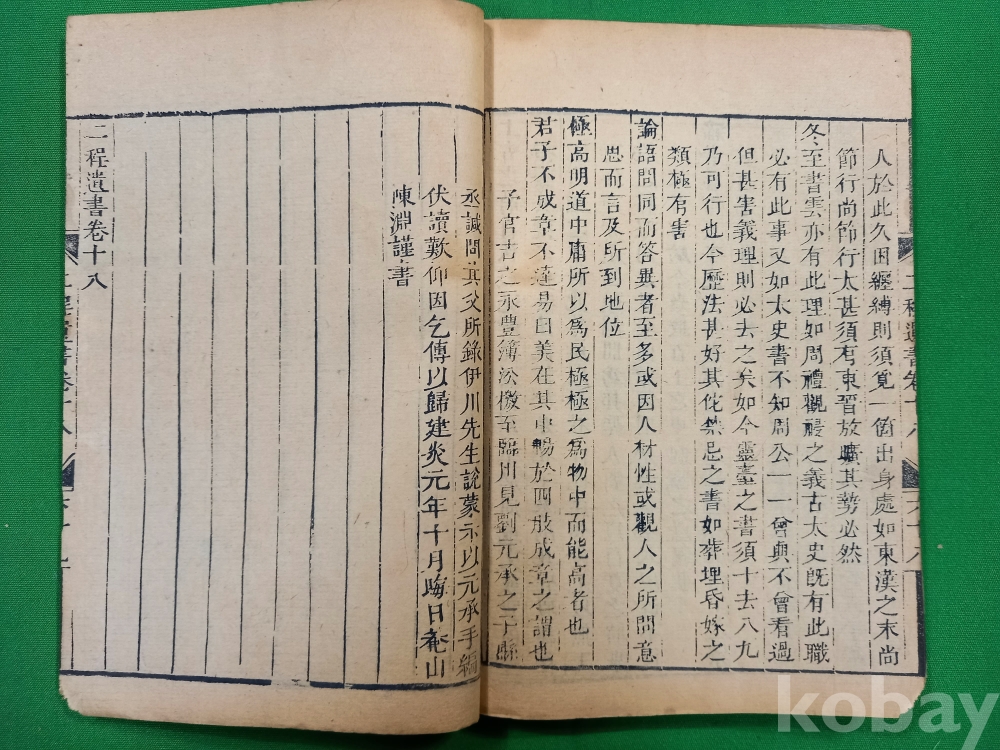 人於此久困纏縛則須覓一箇出身處如東漢之末尚
節行尚節行太甚須有東晉放曠其勢必然
冬至書雲亦有此理如周禮觀祲之義古太史旣有此職
必有此事又如太史書不知周公一一曾與不曾看過
但甚害義理則必去之矣如今靈臺之書須十去八九
乃可行也今歷法甚好其佗禁忌之書如葬埋昏嫁之
類極有害
論語問同而答異者至多或因人材性或觀人之所問意
思而言及所到地位
極高明道中庸所以爲民極極之爲物中而能高者也
君子不成章不達易曰美在其中暢於四肢成章之謂也
予官吉之永豐簿沿檄至臨川見劉元承之子縣
丞誠問其父所錄伊川先生說蒙示以元承手編
伏讀歎仰因乞傳以歸建炎元年十月晦日菴山
陳淵謹書
二程遺書卷十八
二程遺書卷十八
六十八
二程遺書卷十八
六十九
kobay